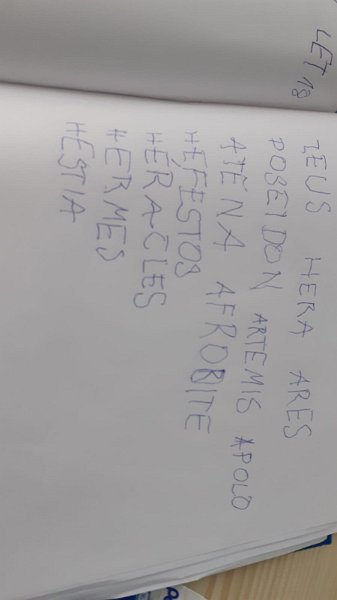 LET 18
ZEUS HERA ARES
POSEIDON ARTEMIS APOLO
ATENA AFRODITE
HEFESTOS
HERACLES
HERMES
HESTIA